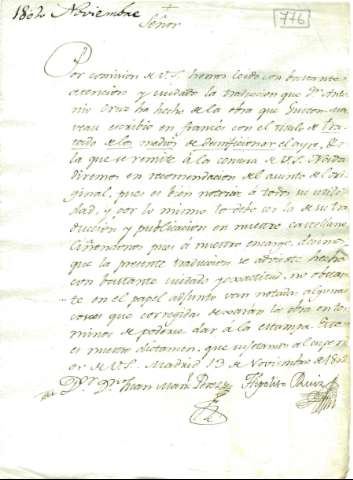 1802 Noviembre
776
Señor
Por comision de V.S. hemos leido con bastante
atencion y cuidado la traduccion que Dn. Anto-
nio Cruz ha hecho de la obra que Guiton-mor-
veau escribio en francés con el titulo de Tra-
tado de los medios de desinficionar el ayre, &
la que se remite à la censura de V.S. Nada
diremos en recomendacion del asunto del ori-
ginal, pues es bien notoria à todos su utili-
dad, y por lo mismo lo debe ser la de su tra-
duccion y publicacion en nuestro castellano.
Ciñendonos pues à nuestro encargo, decimos
que la presente traduccion se advierte hecha
con bastante cuidado y exactitud, no obstan-
te en el papel adjunto van notadas algunas
cosas que corregidas dexarán la obra en ter-
minos de poderse dar à la estampa. Este
es nuestro dictamen, que sujetamos al superi-
or de V.S. Madrid 13 de Noviembre de 1802
Dr. Dn. Juan Manl. Perez Hipolito Ruiz